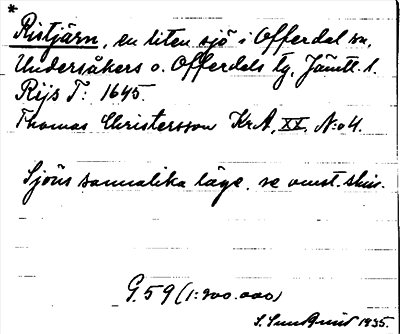 *
Ristjärn, en liten sjö i Offerdal sn,
Undersåkers o. Offerdals tg. Jämtl. l.
Rijs T: 1645.
Thomas Christersson KrA, XX, N:o 4.
Sjöns sannolika läge, se omst. skiss.
G. 59 (1:200.000)
S. Sundqvist 1935.